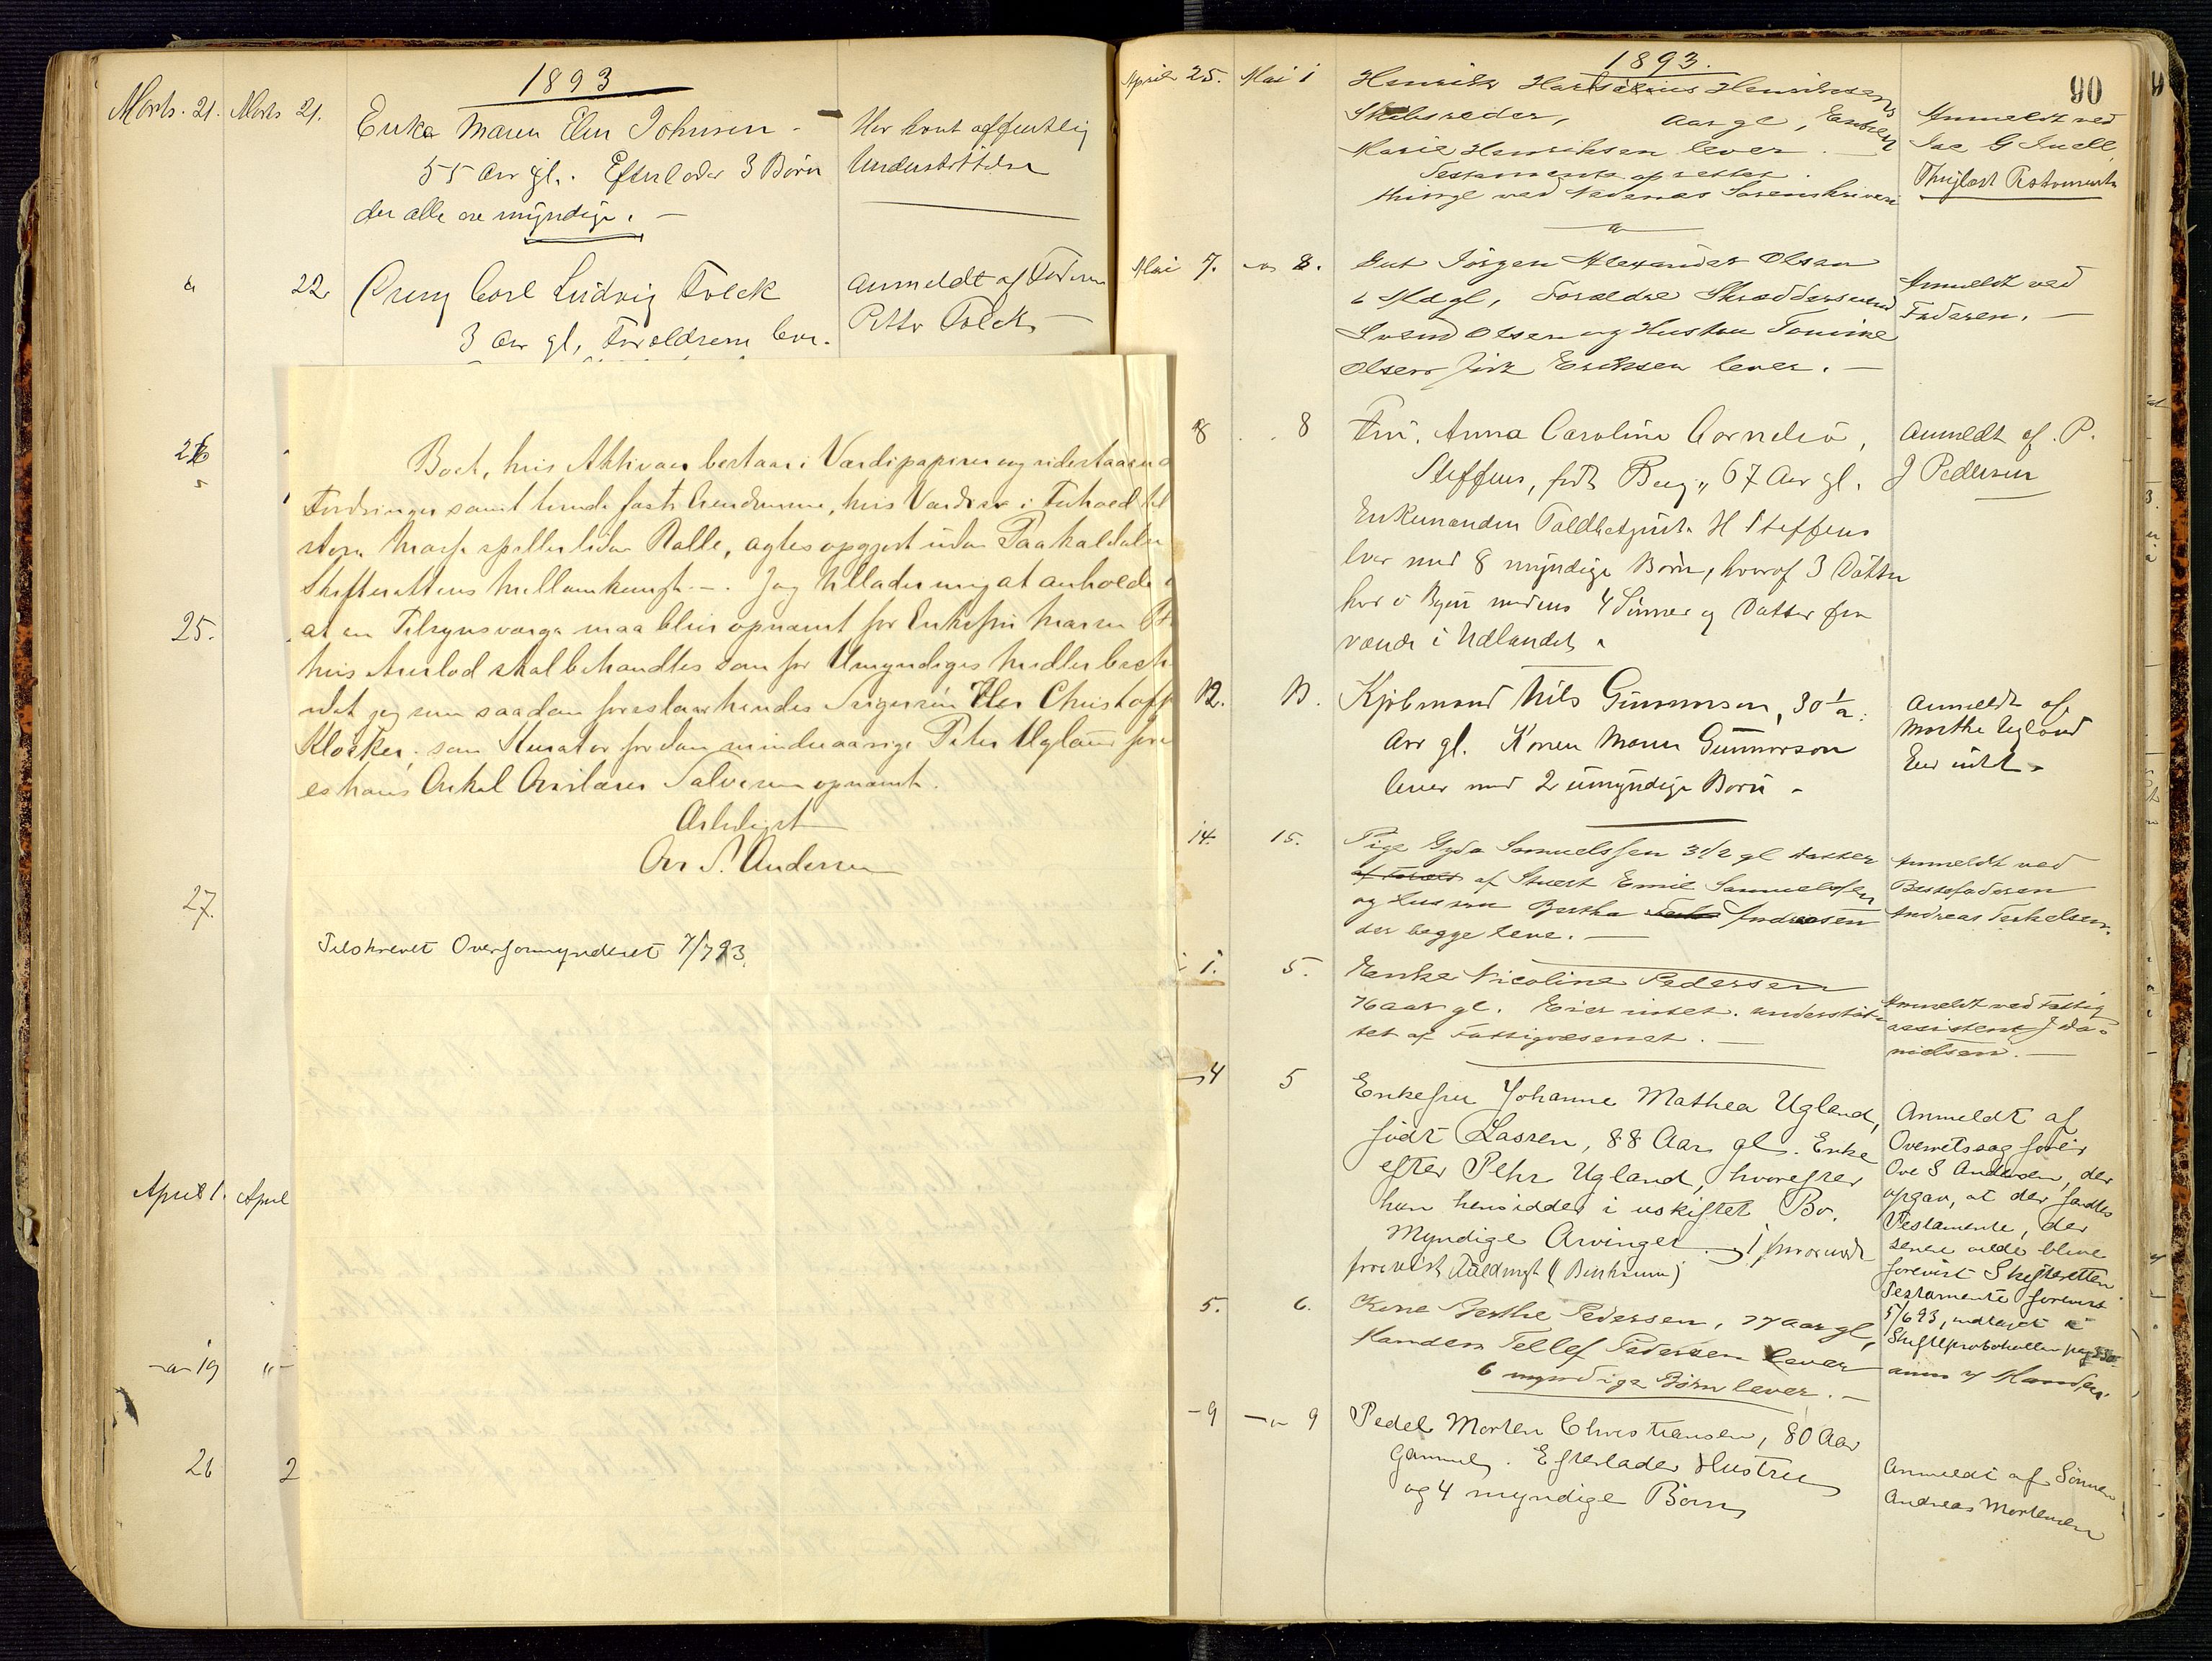 1893
Marts. 21. Marts 21.
Enke Maren Elin Johnsen -
55 Aar gl. Efterlader 3 Børn
der alle ere myndige. -
Har havt offentlig
Understøttelse
" 22.
Dreng Carl Ludvig Folck
3 Aar gl, Forældrene lever.
Anmeldt af Faderen
Petter Folck
26
25.
27.
April 1. April
19 "
26 2
Boet, hvis Aktiva bestaar i Værdipapirer og udestaaende
Fordringer samt hvis Værdier i Forhold til
Masse spiller liden Rolle, agtes opgjort uden Paakaldelse
Skifterettens Mellemkomst. - Jeg tillader mig at anholde
at en Tilsynsværge maa blive opnævnt for Enkefru Maren
hvis Arvelod skal behandles som for Umyndiges Midler
idet jeg som saadan foreslaar hendes Svigersøn Herr Christoff
Kløcker; som Kurator for den mindreaarige Peter Ugland
es hans Onkel Salvesen opnævnt.
Ærbødigst
Ove S. Andersen
Tilskrevet Overformynderiet 7/7 93.
1893.
90
April 25. Mai 1
Henrik Henriksens
Skibsreder, Aar gl, Enken
Marie Henriksen lever. -
Testamente oprettet.
thingl ved Nedenæs Sorenskriveri
Anmeldt ved
Jac G Juell
Thinglæst Testamente
Mai 7. 8.
Gut Jørgen Alexander Olsen
6 Mdgl, Forældre Skræddersvend
Svend Olsen og Hustru Tomine
Olsen født Eriksen lever. -
Anmeldt ved
Faderen. -
8 8
Fru. Anna Caroline Cornelia,
Steffens, født Berg, 67 Aar gl.
Enkemanden Toldbetjent H Steffens
lever med 8 myndige Børn, hvoraf 3 Døttre
her i Byen medens 4 Sønner og Datter fra
værende i Udlandet.
Anmeldt af P.
J Pedersen
12. 13.
Kjøbmand Nils Gunnarson, 30 1/2
Aar gl. Konen Maren Gunnarson
lever med 2 umyndige Børn -
Anmeldt af
Marthe Ugland
Eier intet -
14. 15.
Pige Gyda Samuelsen 3 1/2 gl datter
af af Stuert Emil Samuelsen
og Hustru Bertha Andreasen
der begge leve. -
Anmeldt ved
Bestefaderen
Andreas Terkelsen.
1. 5.
Enke Nicoline Pedersen
76 aar gl. Eier intet. understøt-
tet af Fattigvæsenet. -
Anmeldt ved Fattig
assistent J Da-
nielsen. -
4 5
Enkefru Johanne Mathea Ugland,
født Lassen, 88 Aar gl. Enke
efter Pehr Ugland, hvorefter
hun hensidder i uskiftet Bo.
Myndige Arvinger.
Anmeldt af
Overretssagfører
Ove S Andersen, der
opgav, at der fandtes
Testamente, der
senere vilde blive
forevist Skifteretten
Testamente forevist
5/6 93, indtaget i
Skifteprotokollen pag
5. 6.
Kone Berthe Pedersen, 77 aar gl,
Manden Tellef Pedersen lever
6 myndige Børn lever. -
anm af Manden
9 9
Pedel Morten Christiansen, 80 Aar
Gammel. Efterlader Hustru
og 4 myndige Børn
Anmeldt af Sønnen
Andreas Mortensen